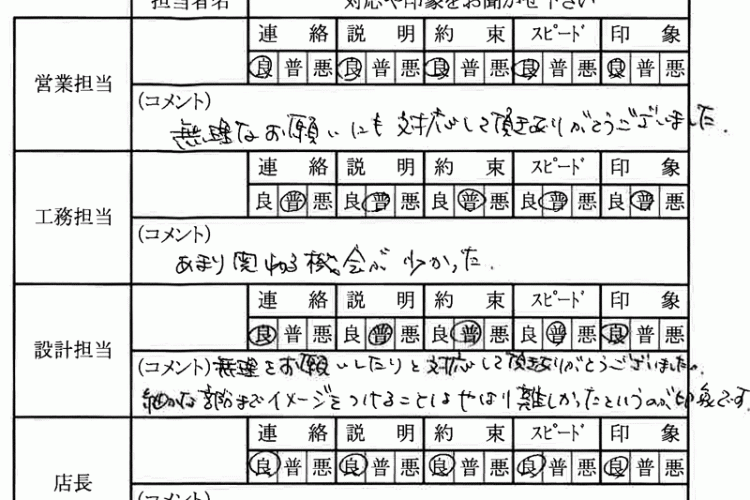 担当者名 対応や印象をお聞かせ下さい
営業担当
連絡 説明 約束 スピード 印象
良 普 悪 良 普 悪 良 普 悪 良 普 悪 良 普 悪
(コメント)
無理なお願いにも対応して頂きありがとうございました.
工務担当
連絡 説明 約束 スピード 印象
良 普 悪 良 普 悪 良 普 悪 良 普 悪 良 普 悪
(コメント)
あまり関わる機会が少なかった.
設計担当
連絡 説明 約束 スピード 印象
良 普 悪 良 普 悪 良 普 悪 良 普 悪 良 普 悪
(コメント)無理をお願いしたりと対応して頂きありがとうございました。
細かな部分までイメージをつけることはやはり難しかったというのが印象です.
店長
連絡 説明 約束 スピード 印象
良 普 悪 良 普 悪 良 普 悪 良 普 悪 良 普 悪
(コメント)